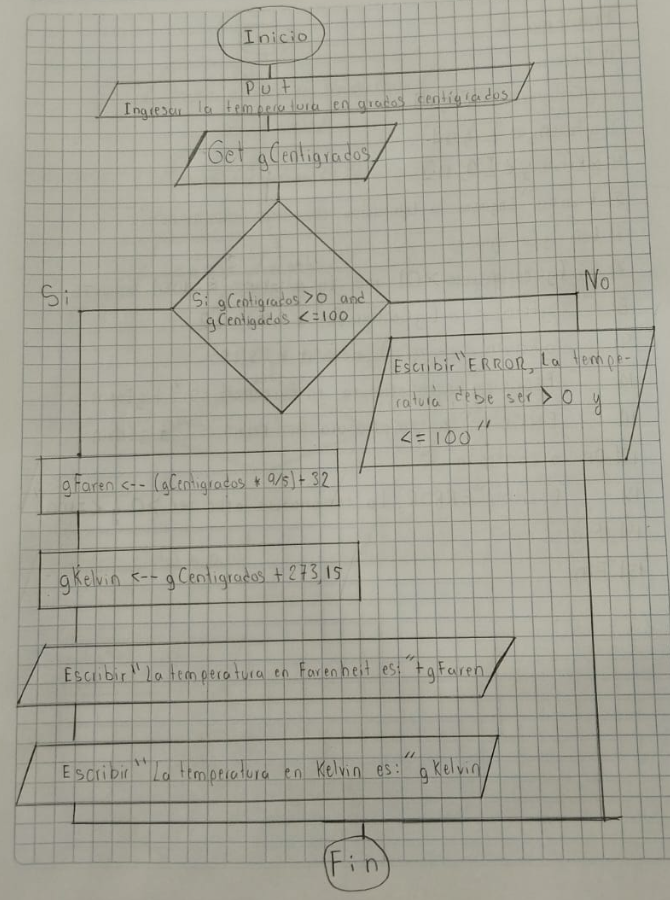 Inicio
Put
Ingresar la temperatura en grados centigrados
Get gCentigrados
Si
No
Si gCentigrados >0 and
gCentigados <=100
Escribir "ERROR, La tempe-
ratura debe ser > 0 y
<= 100"
gFaren <-- (gCentigrados * 9/5) + 32
gKelvin <-- gCentigrados + 273,15
Escribir "La temperatura en Farenheit es:" + gFaren
Escribir "La temperatura en Kelvin es:" gKelvin
Fin